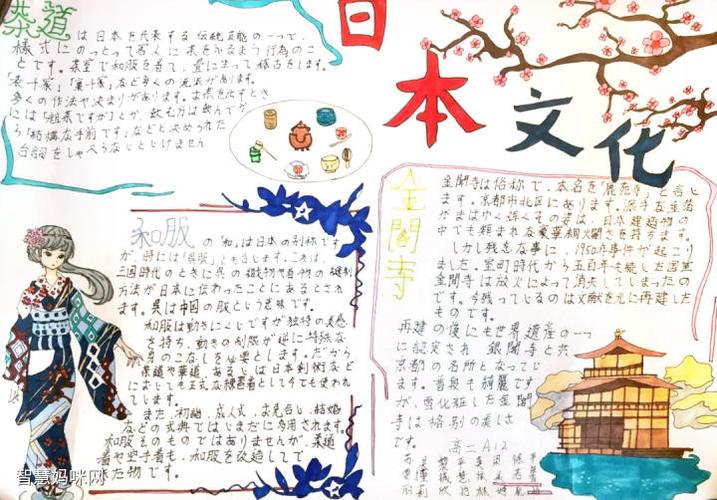 日本文化
茶道は日本を代表する伝統芸能の一つで、
様式にのっとって客人に茶をふるまう行為のこ
とです。茶室で和服を着て、畳に座って稽古をします。
「表千家」「裏千家」など多くの流派があります。
多くの作法や決まりがあります。お茶を出すとき
には「粗茶ですが」とか、飲む方は飲んでか
ら「結構なお手前です」などと決められた
台詞をしゃべらないといけません
和服の「和」は日本の別称です
が、時には「呉服」とも言います。これは、
三国時代のときに呉の織物や着物の縫制
方法が日本に伝わったことにあるとされ
ます。呉は中国の服という意味です。
和服は動きにくいですが独特の美感
を持ち、動きの制限が逆に特殊な
身のこなしを必要とします。だから
茶道や華道、あるいは日本剣術など
においても正式な練習着として今でも使われ
ています。
また、初詣、成人式、お見合い、結婚
などの式典ではいまだに多用されます。
和服そのものではありませんが、柔道
着や空手着も、和服を改造してで
きた物です。
金閣寺
金閣寺は俗称で、本名を「鹿苑寺」と言い
ます。京都市北区にあります。派手な金箔
がまばゆく輝くその姿は、日本建造物の
中でも類まれな豪華絢爛さを持ちます。
しかし残念な事に、1950年事件が起こり
ました。室町時代から五百年も続いた国宝
金閣寺は放火によって消失してしまったの
です。今残っているのは文献を元に再建した
ものです。
再建の後にも世界遺産の一つ
に認定され、銀閣寺と共
京都の名所となってい
ます。普段も綺麗です
が、雪化粧した金閣
寺は格別の美しさ
です。
高二A12
智慧妈咪网